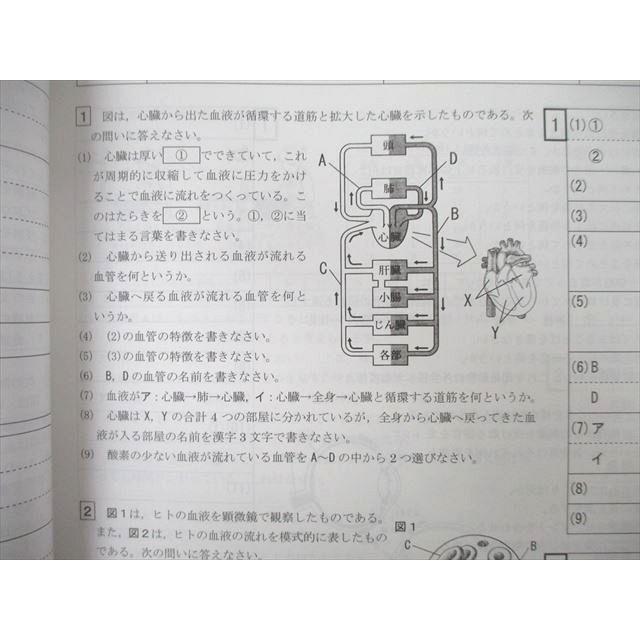 1 図は，心臓から出た血液が循環する道筋と拡大した心臓を示したものである。次
の問いに答えなさい。
(1) 心臓は厚い ① でできていて，これ
が周期的に収縮して血液に圧力をかけ
ることで血液に流れをつくっている。こ
のはたらきを ② という。①，②に当
てはまる言葉を書きなさい。
(2) 心臓から送り出される血液が流れる
血管を何というか。
(3) 心臓へ戻る血液が流れる血管を何と
いうか。
(4) (2)の血管の特徴を書きなさい。
(5) (3)の血管の特徴を書きなさい。
(6) B，Dの血管の名前を書きなさい。
(7) 血液がア：心臓→肺→心臓，イ：心臓→全身→心臓と循環する道筋を何というか。
(8) 心臓はX，Yの合計4つの部屋に分かれているが，全身から心臓へ戻ってきた血
液が入る部屋の名前を漢字3文字で書きなさい。
(9) 酸素の少ない血液が流れている血管をA～Dの中から2つ選びなさい。
頭
A
D
肺
B
心臓
C
肝臓
小腸
じん臓
各部
X
Y
2 図1は，ヒトの血液を顕微鏡で観察したものである。
また，図2は，ヒトの血液の流れを模式的に表したもの
である。次の問いに答えなさい。
図1
C
B
1
(1)①
②
(2)
(3)
(4)
(5)
(6)B
D
(7)ア
イ
(8)
(9)